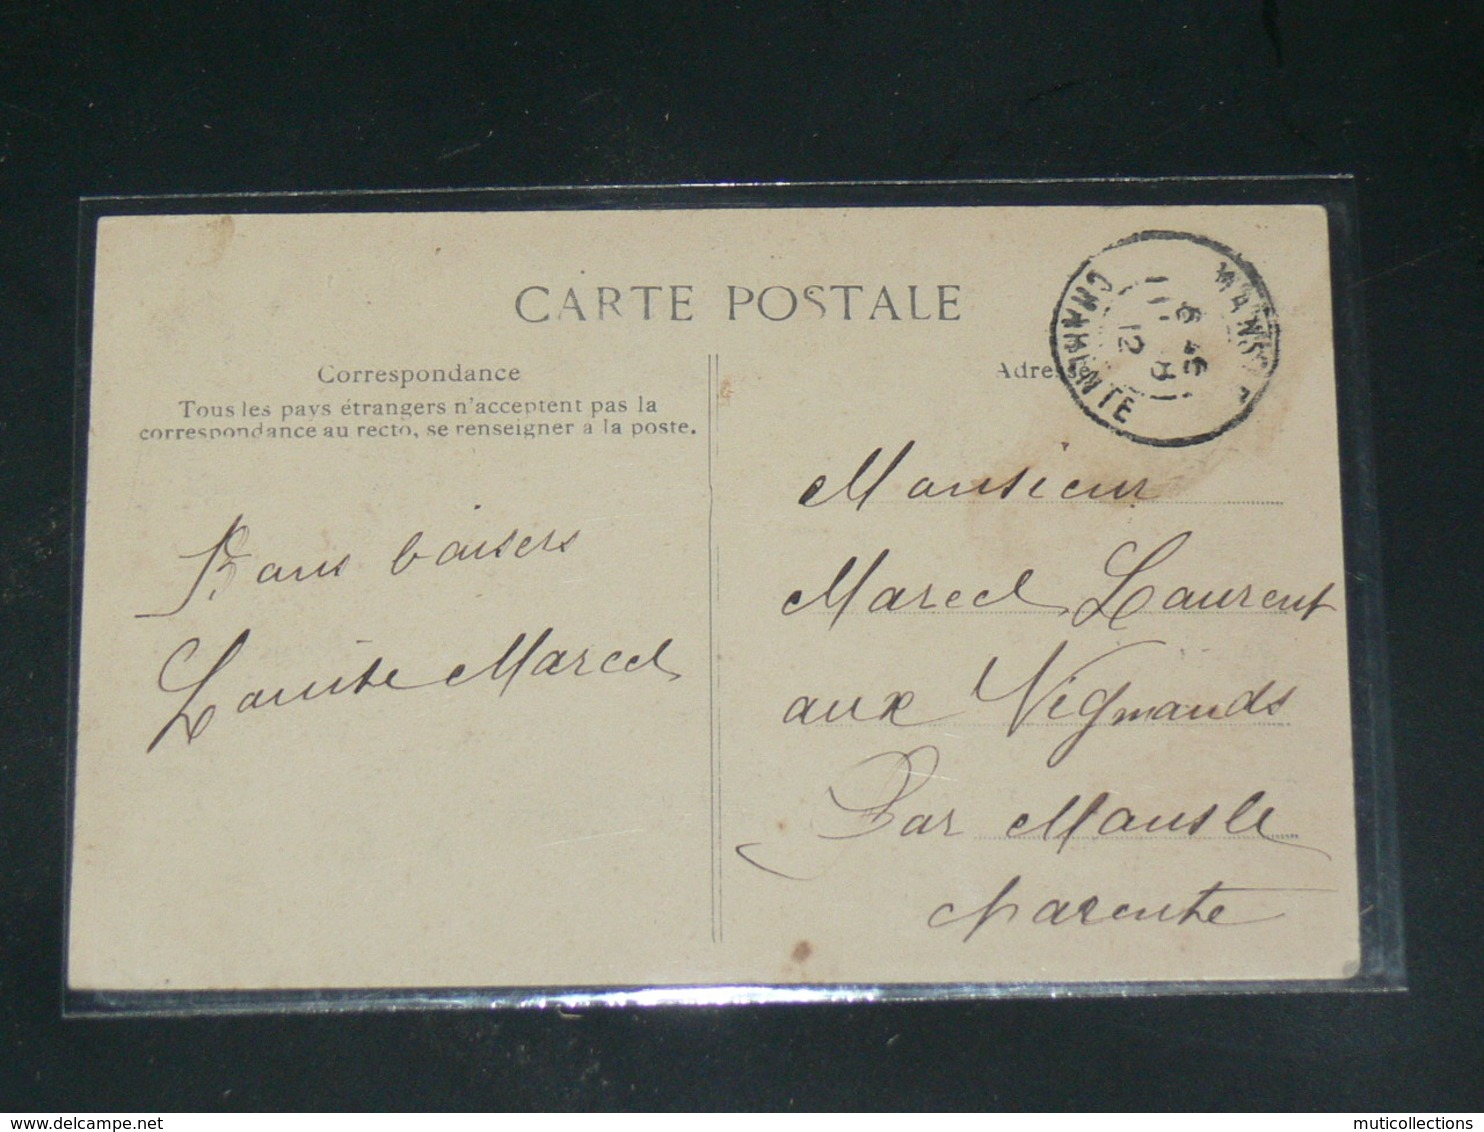 CARTE POSTALE
Correspondance
Tous les pays étrangers n'acceptent pas la
correspondance au recto, se renseigner à la poste.
Bons baisers
Marcel
Adresse
MANSLE
CHARENTE
Monsieur
Marcel Laurent
aux Vignauds
Par Mansle
charente
www.delcampe.net
muticollections